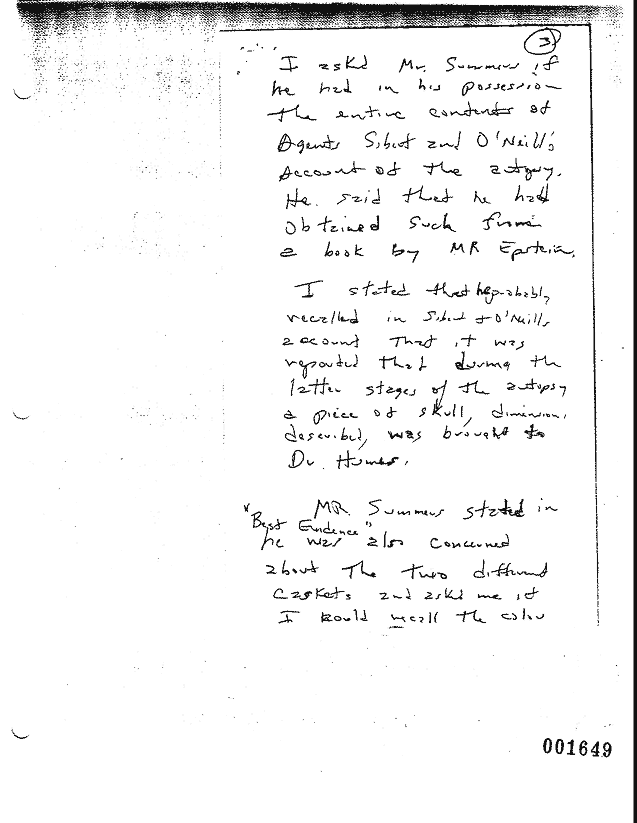 3
I askd Mr. Summers if
he had in his possession
the entire contents of
Agents Sibert and O'Neill's
Account of the autopsy.
He said that he had
obtained such from
a book by MR Epstein.
I stated that he probably
recalled in Sibert & O'Neills
account that it was
reported that during the
latter stages of the autopsy
a piece of skull, dimensions
described, was brought to
Dr. Humes.
MR. Summers stated in
"Best Evidence"
he was also concerned
about the two different
Caskets and askd me if
I could recall the colour
001649